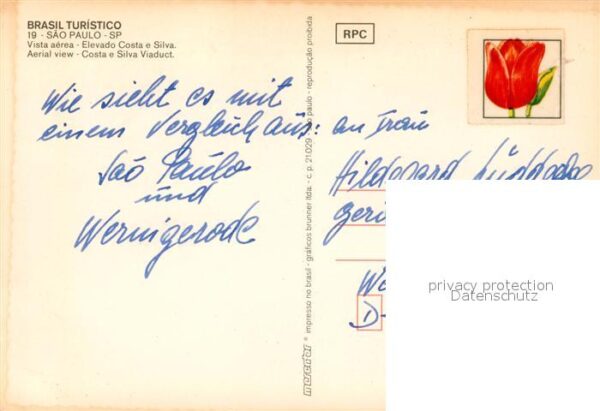 BRASIL TURÍSTICO
19 - SÃO PAULO - SP
Vista aérea - Elevado Costa e Silva.
Aerial view - Costa e Silva Viaduct.
RPC
Wie sieht es mit
einem Vergleich aus:
São Paulo
und
Wernigerode
an Frau
Hildegard
D-
mercator ® impresso no brasil - gráficos brunner ltda. - c. p. 21.029 - são paulo - reprodução proibida
privacy protection
Datenschutz